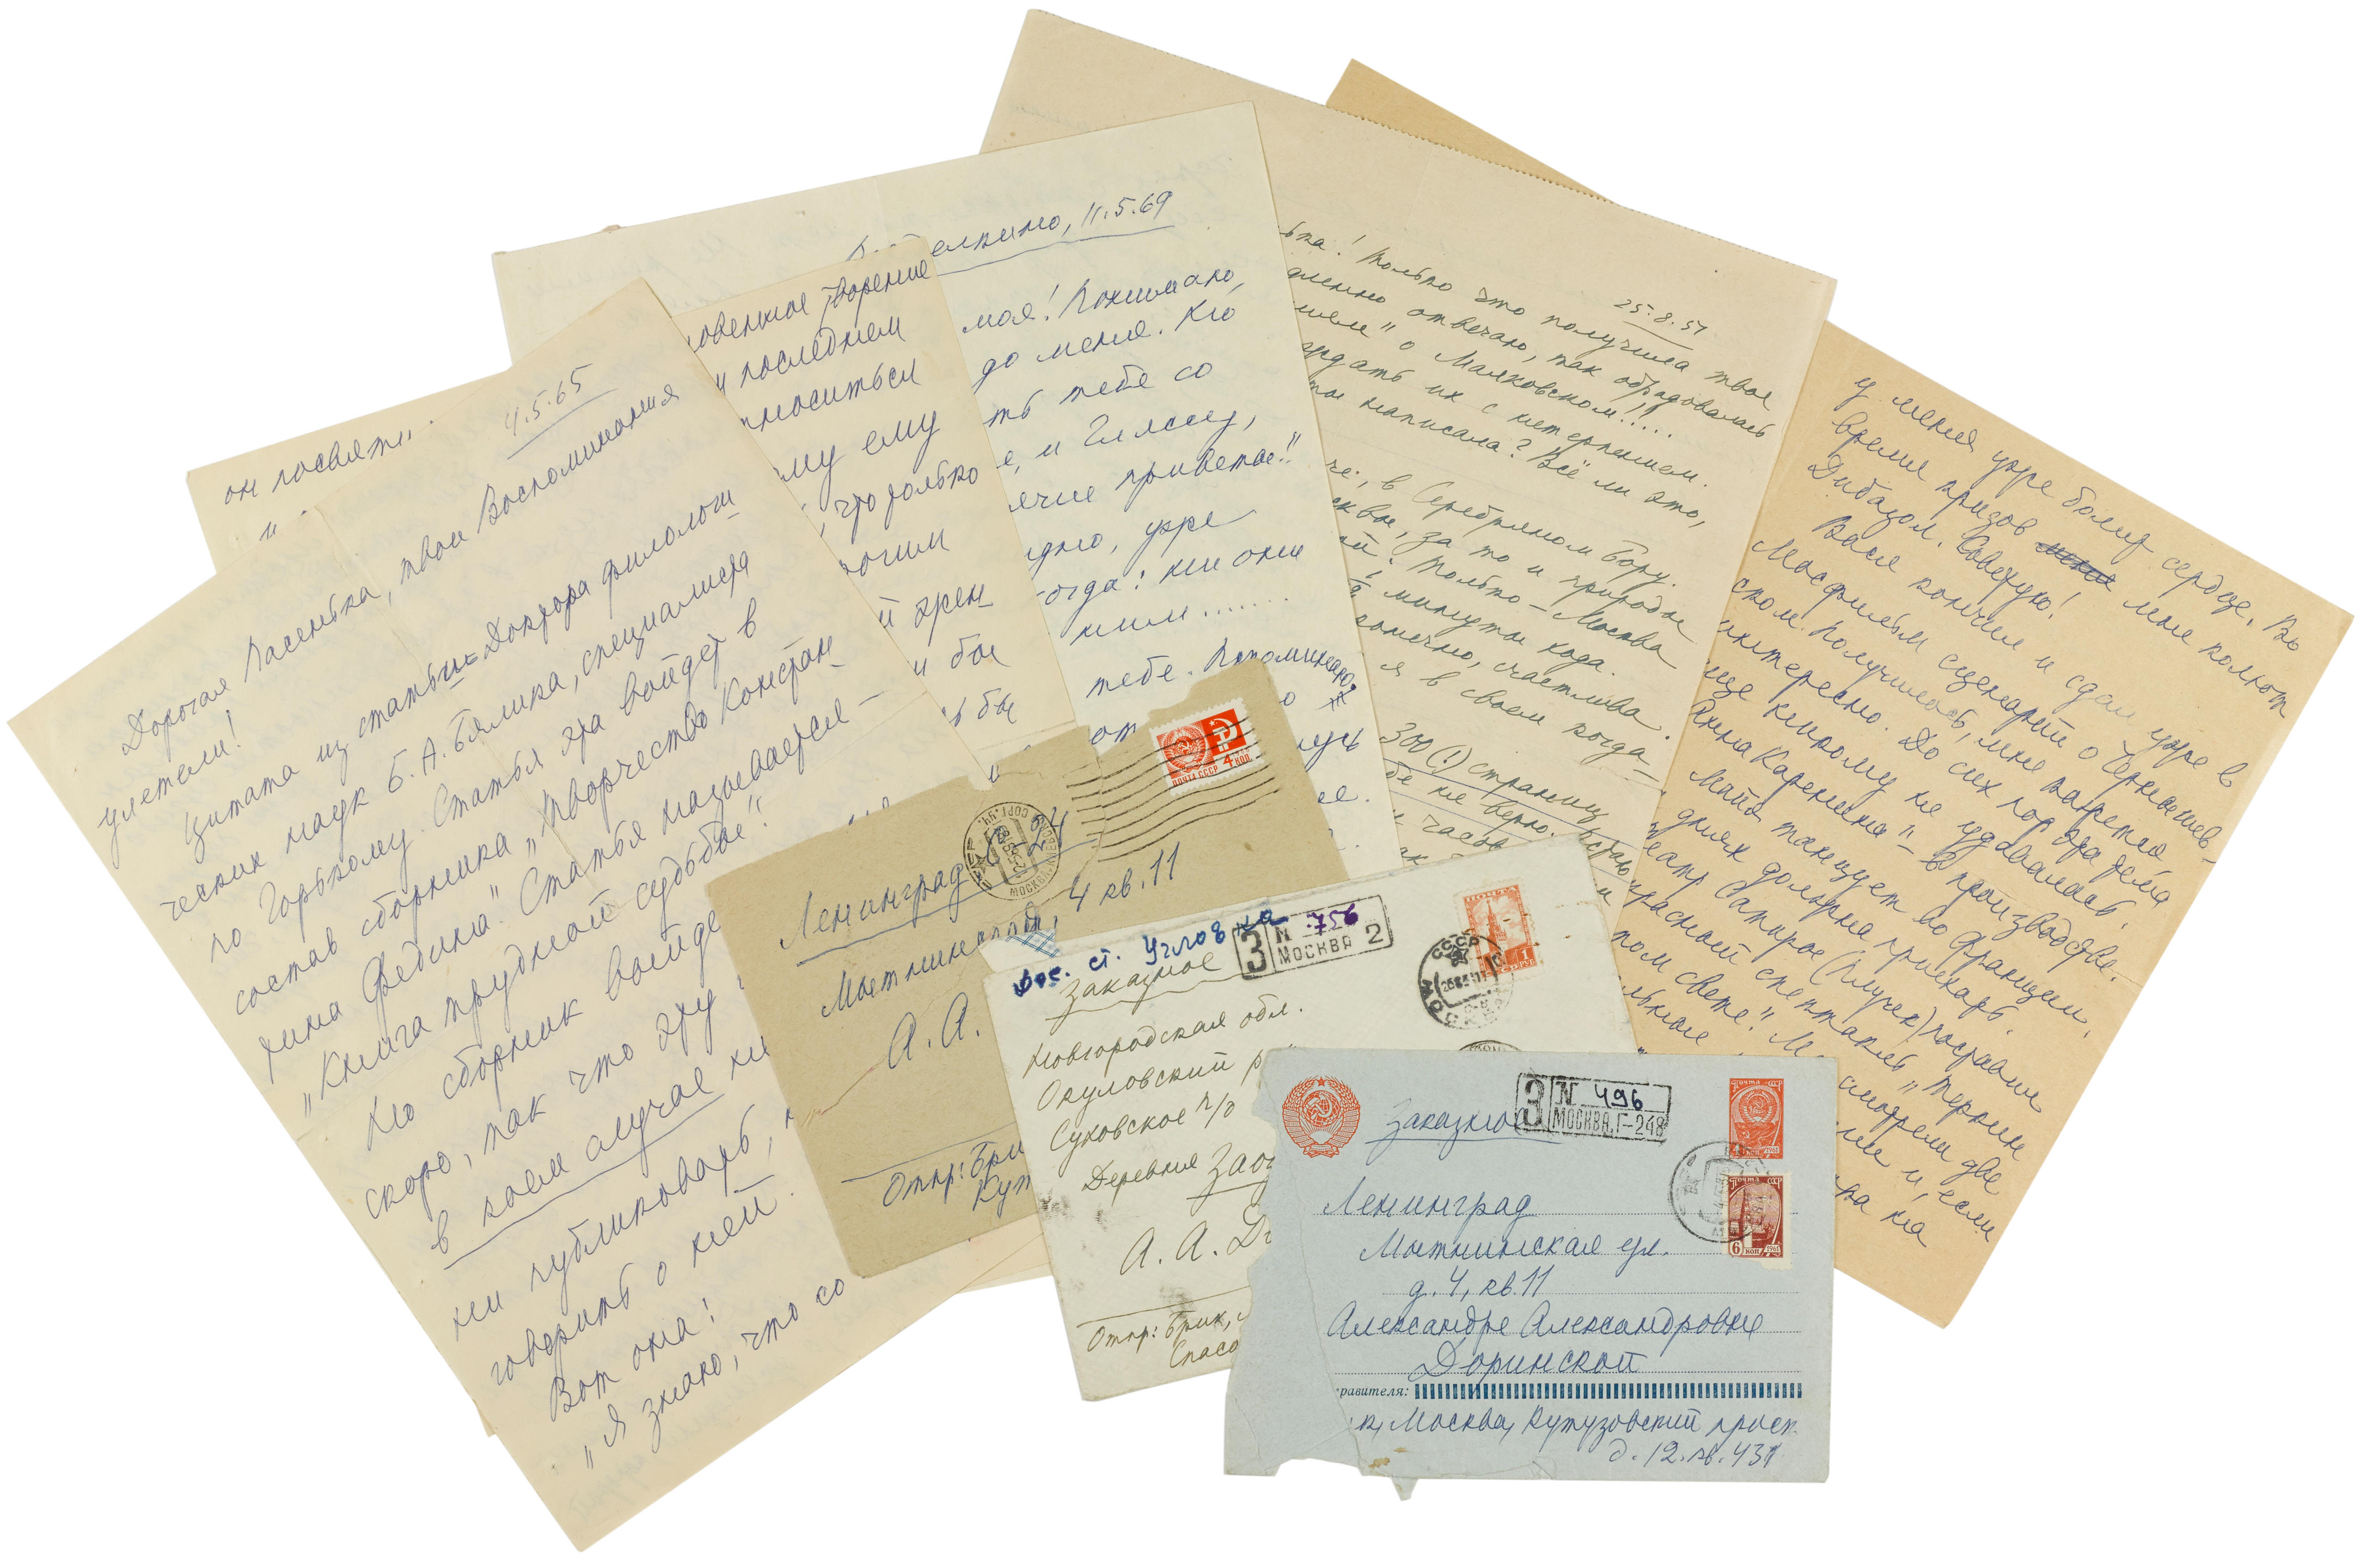 он посвяти
4.5.65
Дорогая Пасенька, твои Воспоминания
улетели!
Цитата из статьи Доктора филологи
ческих наук Б. А. Бялика, специалиста
по Горькому. Статья эта войдет в
состав сборника „Творчество Констан
тина Федина". Статья называется —
„Книга трудной судьбы".
Но сборник выйде
скоро, так что эту
в коем случае не
ни публиковать,
говорить о ней
Вот она!
„Я знаю, что со
новенное творение
и последнем
относиться
ему ему
, что только
й трен
и бы
ь бы
елкино, 11.5.69
моя! Понимаю,
до меня. Но
ть тебе со
е, и Гиллясу,
ячие приветы!"
идно, уже
огда: ни они
ним.......
тебе. Напоминаю
25.8.51
ька! Только что получила твое
дленно отвечаю, так обрадовалась
ием" о Маяковском!!....
ждать их с нетерпением.
ты написала? Всё ли это,
че, в Серебряном Бору.
скве, за то и природа
ай! Только – Москва
минуты хода.
конечно, счастлива
я в своем когда–
300(!) страниц
бе не верю. Встаю
и часов
у меня уже болит сердце. Во
время кризов мне колют
Дибазол. Советую!
Вася кончил и сдал уже в
Мосфильм сценарий о Чернышев–
ском. Получилось, мне кажется
интересно. До сих пор эта тема
еще никому не удавалась.
„Анна Каренина" – в производстве.
Майя танцует во Франции.
днях должна приехать.
театр Сатиры (Плучек) поставил
красной спектакль „Теркин
том свете". М
смотрели две
и, если
на
Ленинград С-24
Мытнинская, 4 кв. 11
А. А.
Отпр: Бри
Кут
ПОЧТА СССР 4 КОП
МОСКВА
Вос. ст. Угловка
Заказное
З N 756
МОСКВА 2
Новгородская обл.
Окуловский р
Сухновское п/о
Деревня Заоз
А. А. До
Отпр: Брик, М
Спасо
СССР
МОСКВА
1
Заказное
З N 496
МОСКВА, Г-248
ПОЧТА СССР
6 КОП 1961
Ленинград
Мытнинская ул.
д. 4, кв. 11
Александре Александровне
Доринской
равителя:
к, Москва, Кутузовский просп.
д. 12. кв. 431